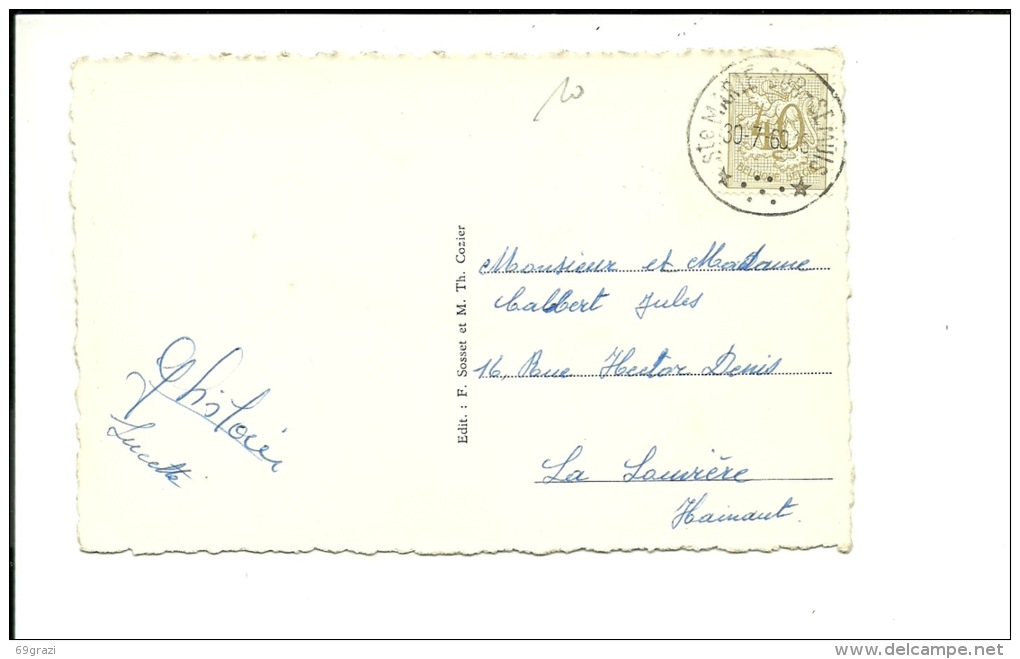 10
Ste MARIE-SUR-SEMOIS
30-7-60
40
Monsieur et Madame
Calbert Jules
16, Rue Hector Denis
La Louvière
Hainaut.
Edit. : F. Sosset et M. Th. Cozier
Ghislain
Lucette
69grazi
delcampe.net